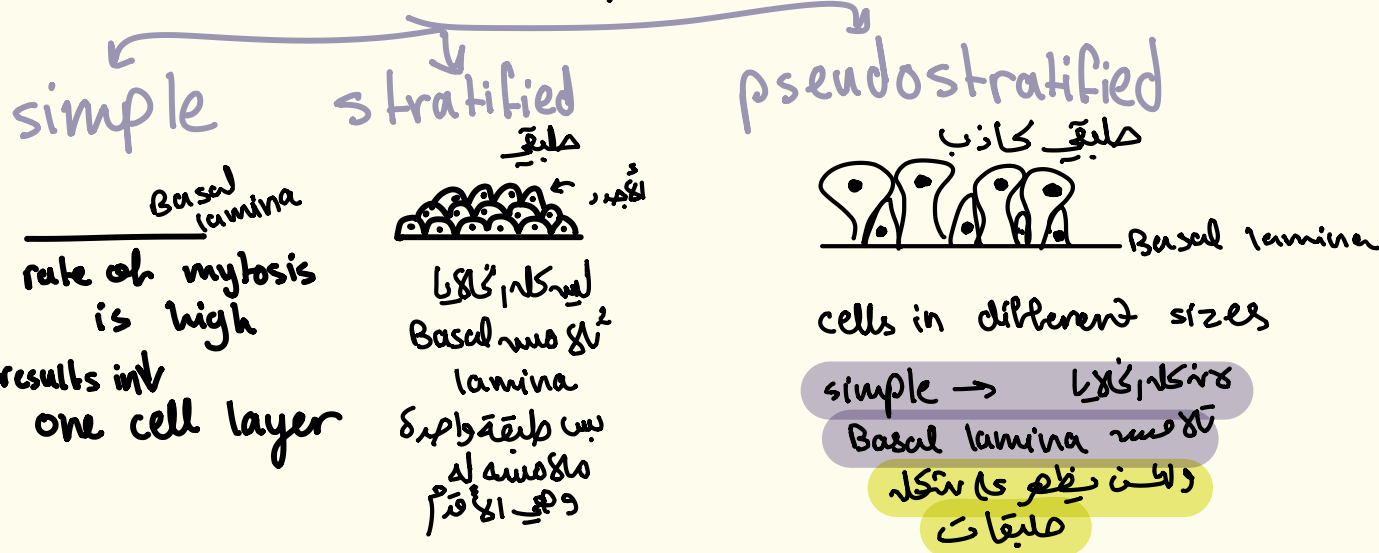 simple
Basal
lamina
rate of mytosis
is high
results in
one cell layer
stratified
طبقي
ليس كل الخلايا
تلامس Basal
lamina
بس طبقة واحدة
ملامسة له
وهي الأقدم
pseudostratified
طبقي كاذب
Basal lamina
cells in different sizes
simple → لأن كل الخلايا
تلامس Basal lamina
ولكن يظهر على شكل
طبقات